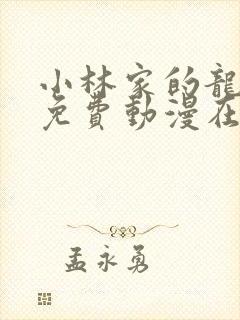 小林家的龍
免費動漫在
孟永勇